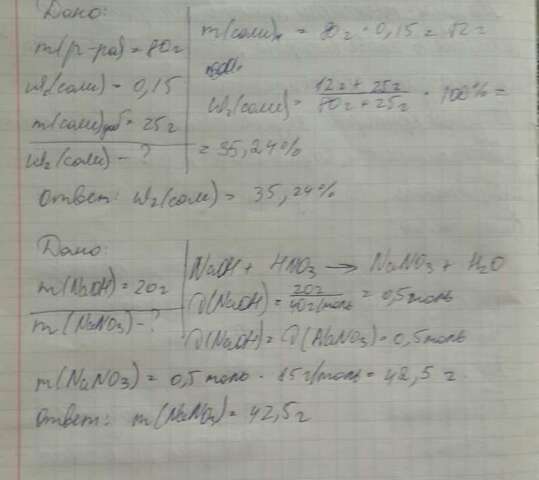 Дано:
m(р-ра) = 80г
ω₁(соли) = 0,15
m(соли)доб = 25г
ω₂(соли) - ?
m(соли)₁ = 80г · 0,15 = 12 г
ω₂(соли) = 12г + 25г / 80г + 25г · 100% =
= 35,24%
Ответ: ω₂(соли) = 35,24%
Дано:
m(NaOH) = 20г
m(NaNO₃) - ?
NaOH + HNO₃ → NaNO₃ + H₂O
ν(NaOH) = 20г / 40г/моль = 0,5моль
ν(NaOH) = ν(NaNO₃) = 0,5моль
m(NaNO₃) = 0,5 моль · 85 г/моль = 42,5 г.
Ответ: m(NaNO₃) = 42,5г